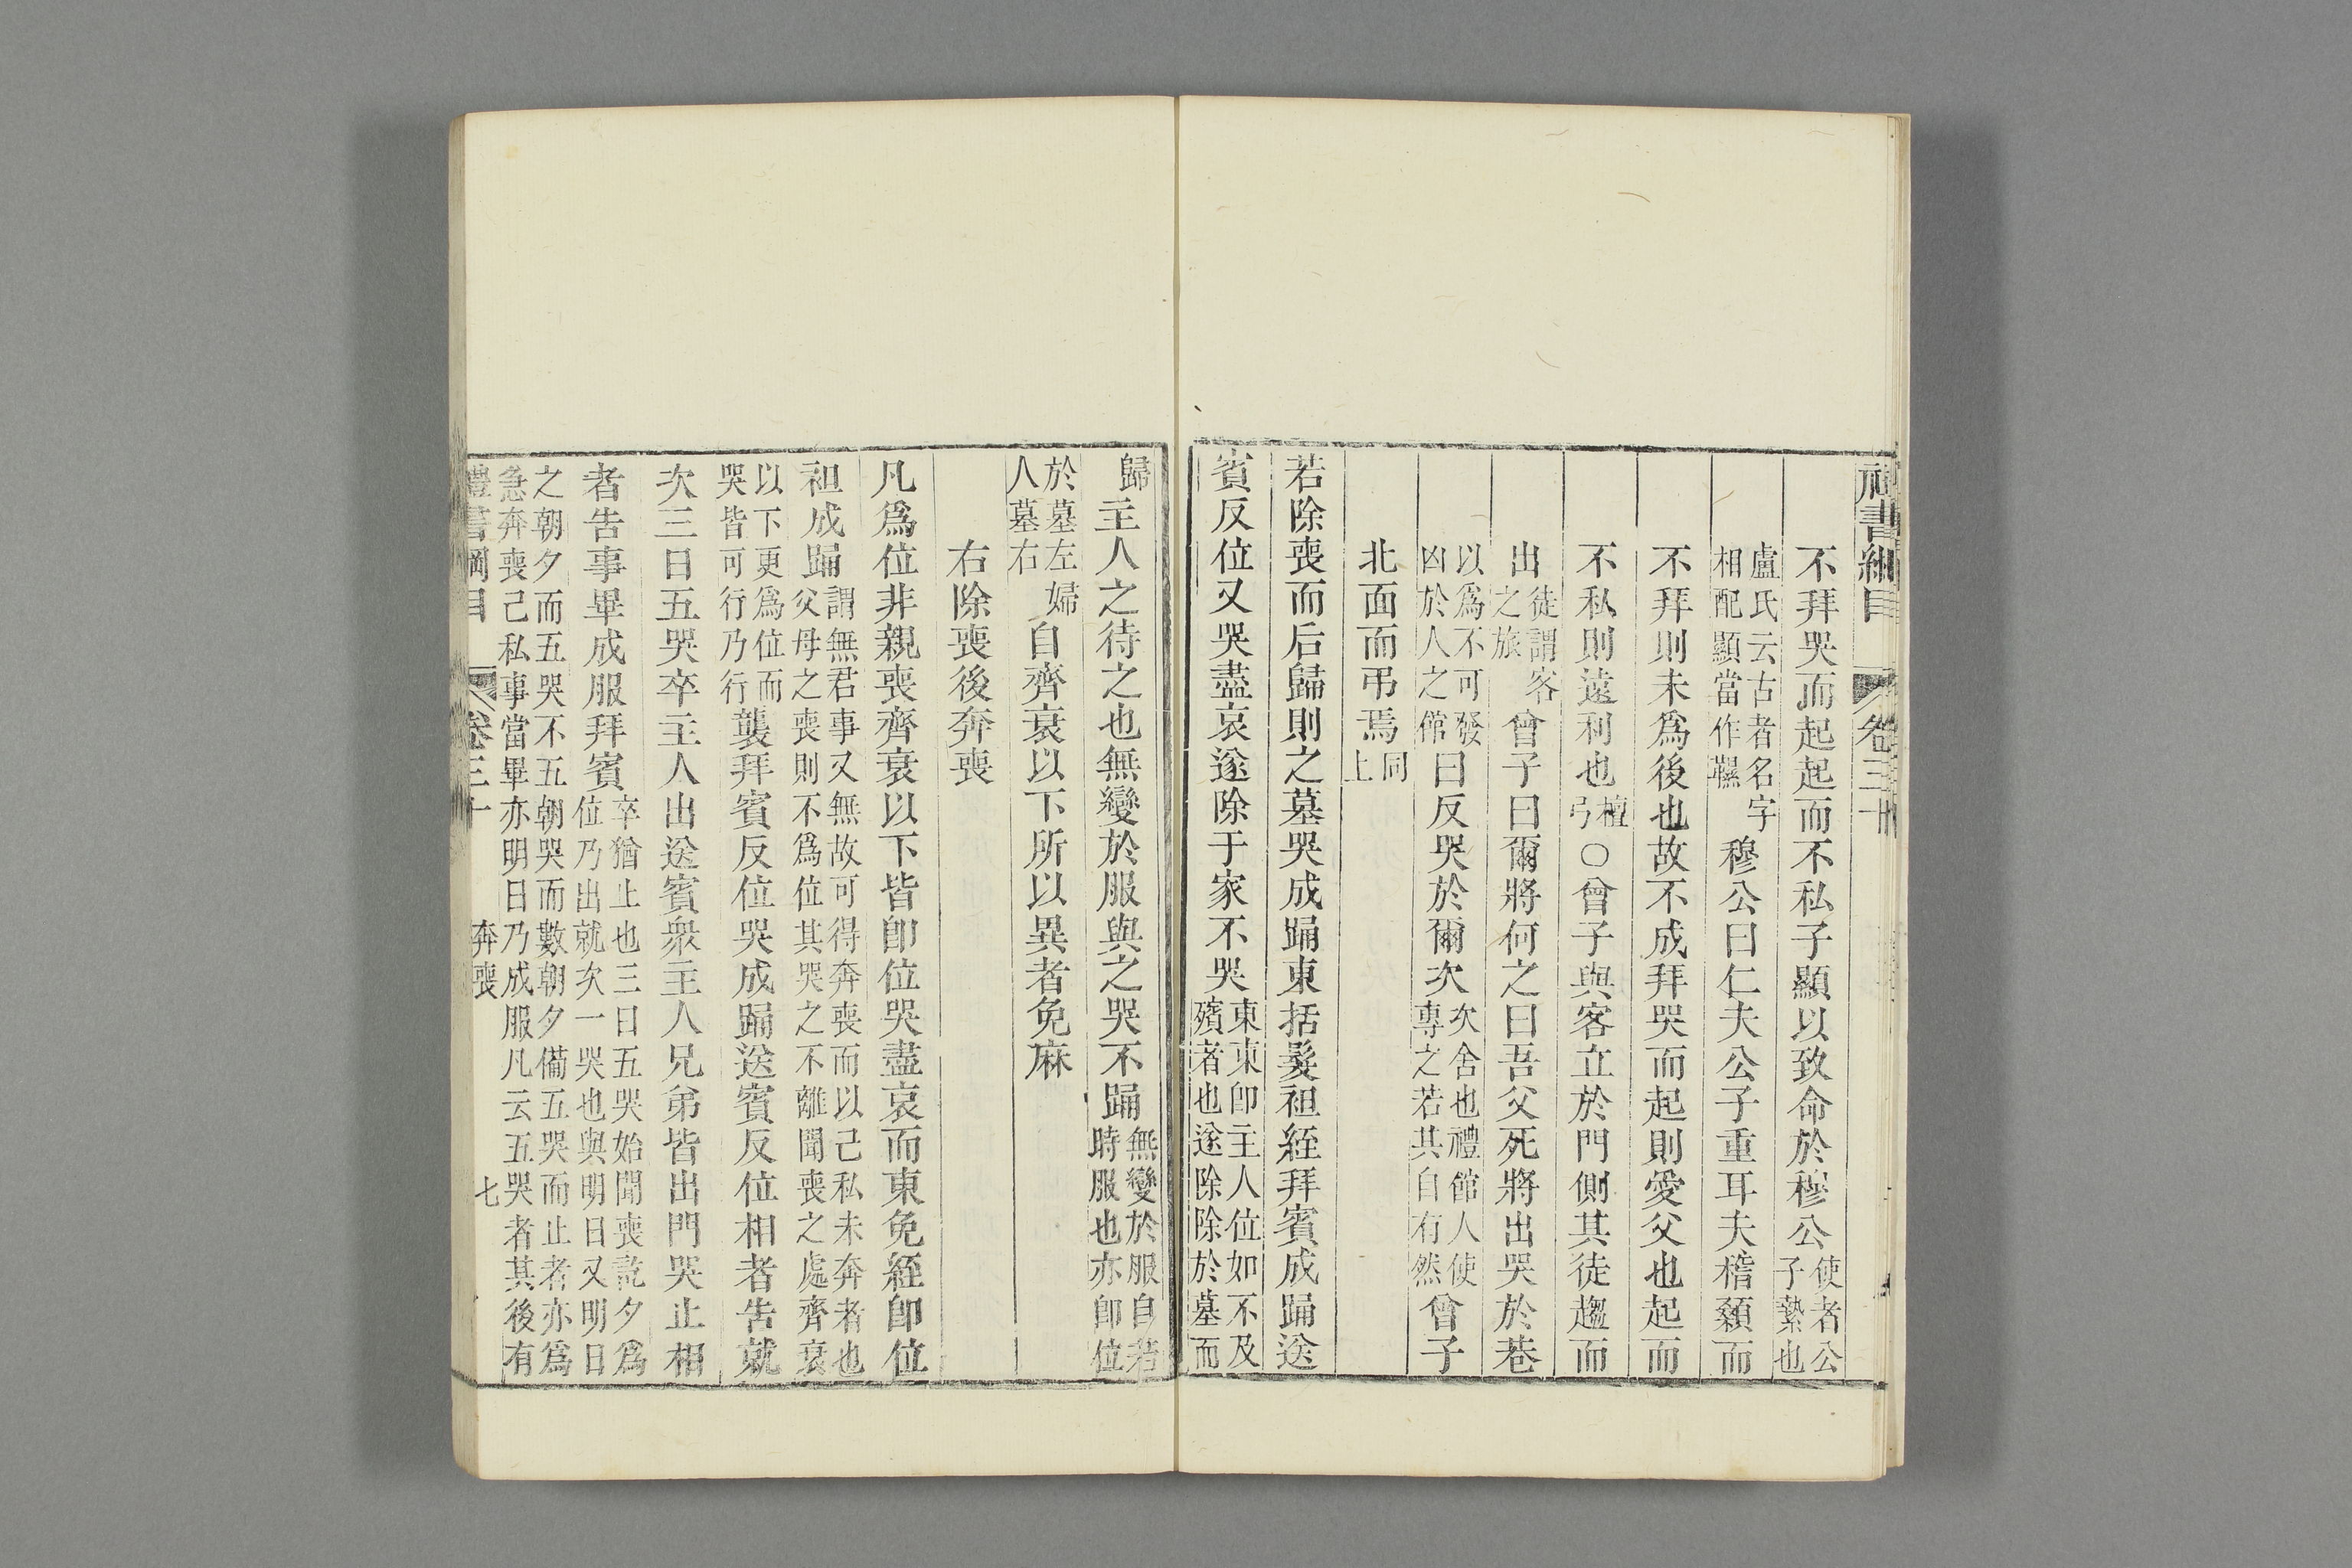 禮書綱目 卷三十
不拜哭而起起而不私子顯以致命於穆公使者公子縶也
盧氏云古者名字相配顯當作韅穆公曰仁夫公子重耳夫稽顙而
不拜則未爲後也故不成拜哭而起則愛父也起而
不私則遠利也檀弓○曾子與客立於門側其徒趨而
出徒謂客之旅曾子曰爾將何之曰吾父死將出哭於巷
以爲不可發凶於人之館曰反哭於爾次次舍也禮館人使專之若其自有然曾子
北面而弔焉同上
若除喪而后歸則之墓哭成踊東括髮袒絰拜賓成踊送
賓反位又哭盡哀遂除于家不哭東東卽主人位如不及殯者也遂除除於墓而
歸主人之待之也無變於服與之哭不踊無變於服自若時服也亦卽位
於墓左婦人墓右自齊衰以下所以異者免麻
右除喪後奔喪
凡爲位非親喪齊衰以下皆卽位哭盡哀而東免絰卽位
袒成踊謂無君事又無故可得奔喪而以己私未奔者也父母之喪則不爲位其哭之不離聞喪之處齊衰
以下更爲位而哭皆可行乃行襲拜賓反位哭成踊送賓反位相者告就
次三日五哭卒主人出送賓衆主人兄弟皆出門哭止相
者告事畢成服拜賓卒猶止也三日五哭始聞喪訖夕爲位乃出就次一哭也與明日又明日
之朝夕而五哭不五朝哭而數朝夕備五哭而止者亦爲急奔喪己私事當畢亦明日乃成服凡云五哭者其後有
禮書綱目 卷三十 奔喪 七